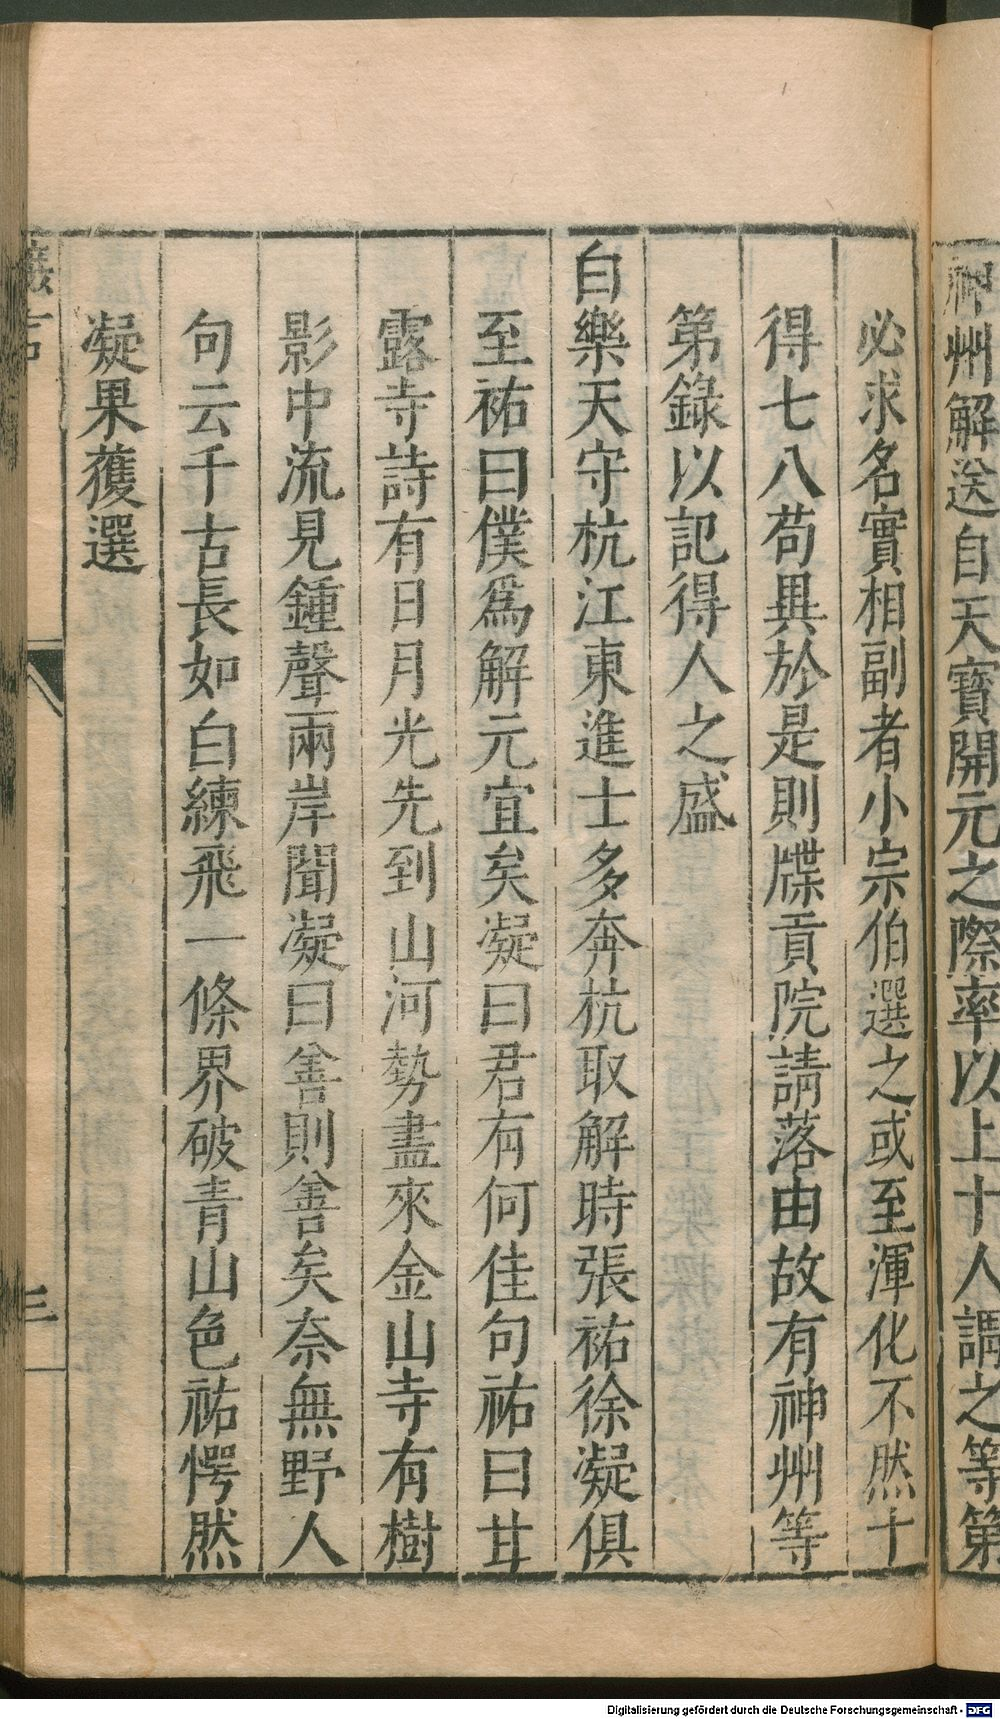 神州解送自天寶開元之際率以上十人謂之等第
必求名實相副者小宗伯選之或至渾化不然十
得七八苟異於是則牒貢院請落由故有神州等
第錄以記得人之盛
白樂天守杭江東進士多奔杭取解時張祐徐凝俱
至祐曰僕爲解元宜矣凝曰君有何佳句祐曰甘
露寺詩有日月光先到山河勢盡來金山寺有樹
影中流見鍾聲兩岸聞凝曰善則善矣奈無野人
句云千古長如白練飛一條界破青山色祐愕然
凝果獲選
言
三
Digitalisierung gefördert durch die Deutsche Forschungsgemeinschaft - DFG